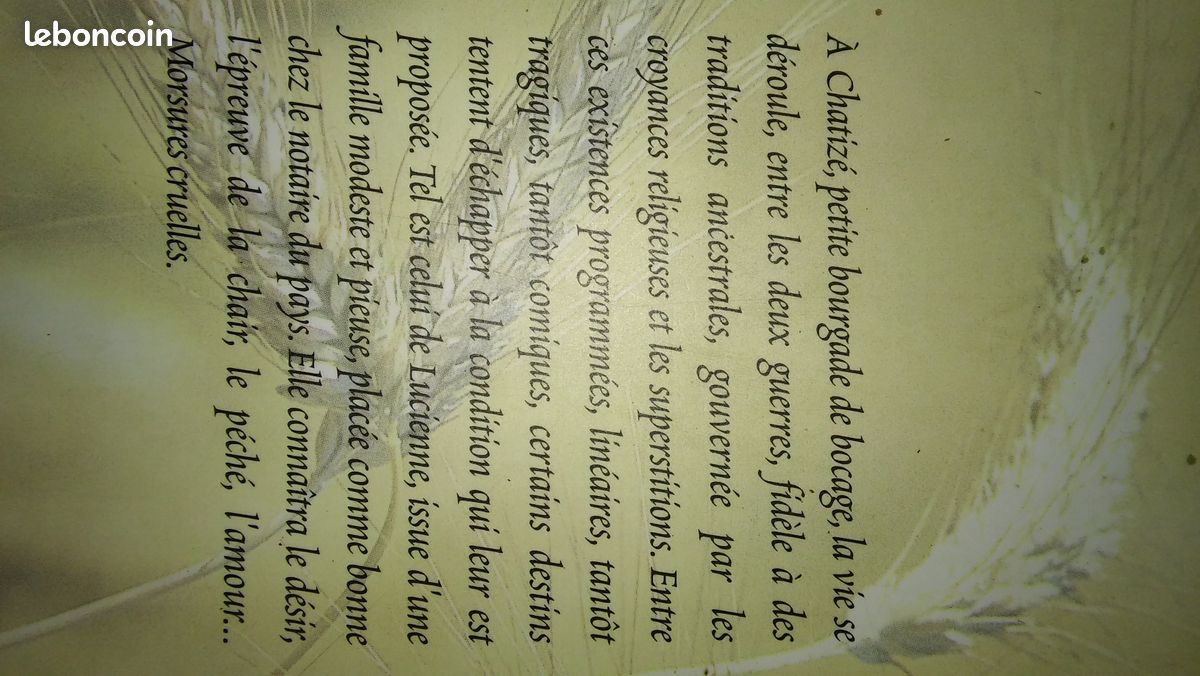 leboncoin
À Chatizé, petite bourgade de bocage, la vie se
déroule, entre les deux guerres, fidèle à des
traditions ancestrales, gouvernée par les
croyances religieuses et les superstitions. Entre
ces existences programmées, linéaires, tantôt
tragiques, tantôt comiques, certains destins
tentent d'échapper à la condition qui leur est
proposée. Tel est celui de Lucienne, issue d'une
famille modeste et pieuse, placée comme bonne
chez le notaire du pays. Elle connaîtra le désir,
l'épreuve de la chair, le péché, l'amour...
Morsures cruelles.